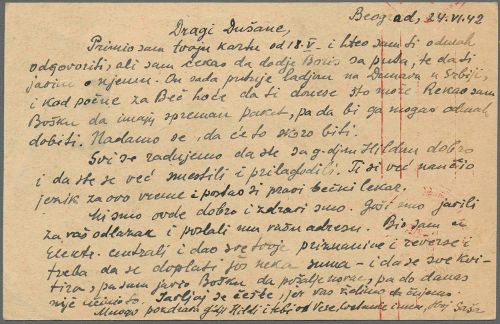 Beograd, 24.VI.42
Dragi Dušane,
Primio sam tvoju kartu od 18.V – i hteo sam ti odmah
odgovoriti, ali sam čekao da dodje Boris sa puta, te da ti
javim o njemu. On sada putuje ladjom na Dunavu u Srbiji,
i kad počne za Beč hoće da ti donese što može. Rekao sam
Bošku da imaju spreman paket, pa da bi ga mogao odmah
dobiti. Nadamo se, da će to skoro biti.
Svi se radujemo da ste sa g-djom Hildom dobro
i da ste se već smestili i prilagodili. Ti si već naučio
jezik za ovo vreme i postao si pravi bečki lekar.
Mi smo ovde dobro i zdravi smo. Gosi smo javili
za vaš odlazak i poslali mu vašu adresu. Bio sam u
Elektr. centrali i dao sve tvoje priznanice i reverse i
treba da se doplati još neka suma – i da se sve
pa sam javio Bošku da pošalje novac, pa do danas
nije učinio to. Javljaj se češće, jer vas želimo da čujemo.
Mnogo pozdrava g-dji Hildi i tebi od Vese, i mene, tvoj Saša